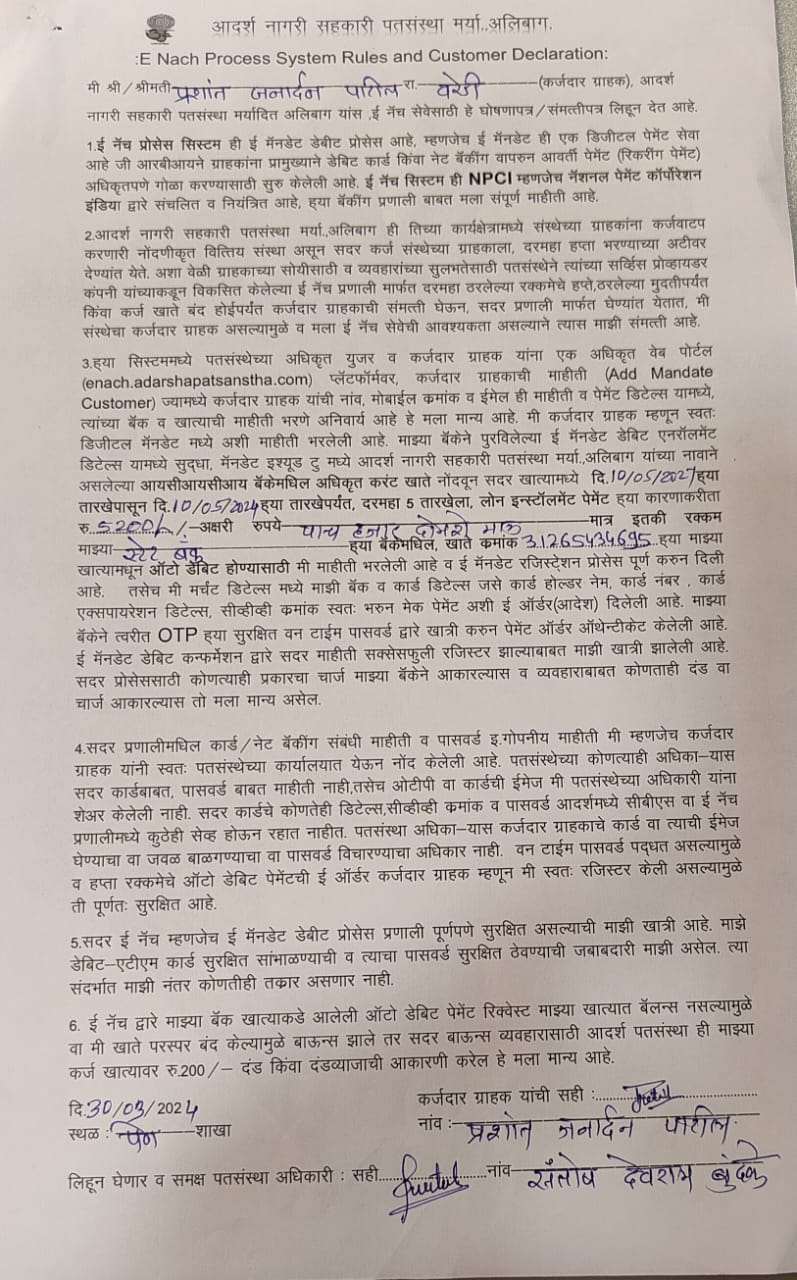 आदर्श नागरी सहकारी पतसंस्था मर्या..अलिबाग.
:E Nach Process System Rules and Customer Declaration:
मी श्री/श्रीमती प्रशांत जनार्दन पाटिल रा. वरेडी (कर्जदार ग्राहक), आदर्श
नागरी सहकारी पतसंस्था मर्यादित अलिबाग यांस ,ई नॅच सेवेसाठी हे घोषणापत्र/संमत्तीपत्र लिहून देत आहे.
1.ई नॅच प्रोसेस सिस्टम ही ई मॅनडेट डेबीट प्रोसेस आहे, म्हणजेच ई मॅनडेट ही एक डिजीटल पेमेंट सेवा
आहे जी आरबीआयने ग्राहकांना प्रामुख्याने डेबिट कार्ड किंवा नेट बॅकींग वापरुन आवर्ती पेमेंट (रिकरींग पेमेंट)
अधिकृतपणे गोळा करण्यासाठी सुरु केलेली आहे. ई नॅच सिस्टम ही NPCI म्हणजेच नॅशनल पेमेंट कॉर्पोरेशन
इंडिया द्वारे संचलित व नियंत्रित आहे, ह्या बॅकींग प्रणाली बाबत मला संपूर्ण माहीती आहे.
2.आदर्श नागरी सहकारी पतसंस्था मर्या.,अलिबाग ही तिच्या कार्यक्षेत्रामध्ये संस्थेच्या ग्राहकांना कर्जवाटप
करणारी नोंदणीकृत वित्तिय संस्था असून सदर कर्ज संस्थेच्या ग्राहकाला, दरमहा हप्ता भरण्याच्या अटीवर
देण्यांत येते. अशा वेळी ग्राहकाच्या सोयीसाठी व व्यवहारांच्या सुलभतेसाठी पतसंस्थेने त्यांच्या सर्व्हिस प्रोव्हायडर
कंपनी यांच्याकडून विकसित केलेल्या ई नॅच प्रणाली मार्फत दरमहा ठरलेल्या रक्कमेचे हप्ते,ठरलेल्या मुदतीपर्यंत
किंवा कर्ज खाते बंद होईपर्यंत कर्जदार ग्राहकाची संमत्ती घेऊन, सदर प्रणाली मार्फत घेण्यांत येतात, मी
संस्थेचा कर्जदार ग्राहक असल्यामुळे व मला ई नॅच सेवेची आवश्यकता असल्याने त्यास माझी संमत्ती आहे.
3.ह्या सिस्टममध्ये पतसंस्थेच्या अधिकृत युजर व कर्जदार ग्राहक यांना एक अधिकृत वेब पोर्टल
(enach.adarshapatsanstha.com) प्लॅटफॉर्मवर, कर्जदार ग्राहकाची माहीती (Add Mandate
Customer) ज्यामध्ये कर्जदार ग्राहक यांची नांव, मोबाईल क्रमांक व ईमेल ही माहीती व पेमेंट डिटेल्स यामध्ये,
त्यांच्या बॅक व खात्याची माहीती भरणे अनिवार्य आहे हे मला मान्य आहे. मी कर्जदार ग्राहक म्हणून स्वतः
डिजीटल मॅनडेट मध्ये अशी माहीती भरलेली आहे. माझ्या बॅकेने पुरविलेल्या ई मॅनडेट डेबिट एनरॉलमेंट
डिटेल्स यामध्ये सुद्धा, मॅनडेट इश्यूड टु मध्ये आदर्श नागरी सहकारी पतसंस्था मर्या.,अलिबाग यांच्या नावाने
असलेल्या आयसीआयसीआय बॅकेमधिल अधिकृत करंट खाते नोंदवून सदर खात्यामध्ये दि.10/05/2027ह्या
तारखेपासून दि.10/05/2024ह्या तारखेपर्यंत, दरमहा 5 तारखेला, लोन इन्स्टॉलमेंट पेमेंट ह्या कारणाकरीता
रु.5200/-/-अक्षरी रुपये पाच हजार दोनशे मात्र मात्र इतकी रक्कम
माझ्या स्टेट बँक ह्या बॅकेमधिल, खाते क्रमांक 31265434695 ह्या माझ्या
खात्यामधून ऑटो डेबिट होण्यासाठी मी माहीती भरलेली आहे व ई मॅनडेट रजिस्ट्रेशन प्रोसेस पूर्ण करुन दिली
आहे. तसेच मी मर्चंट डिटेल्स मध्ये माझी बॅक व कार्ड डिटेल्स जसे कार्ड होल्डर नेम, कार्ड नंबर , कार्ड
एक्सपायरेशन डिटेल्स, सीव्हीव्ही क्रमांक स्वतः भरुन मेक पेमेंट अशी ई ऑर्डर(आदेश) दिलेली आहे. माझ्या
बॅकेने त्वरीत OTP ह्या सुरक्षित वन टाईम पासवर्ड द्वारे खात्री करुन पेमेंट ऑर्डर ऑथेन्टीकेट केलेली आहे.
ई मॅनडेट डेबिट कन्फर्मेशन द्वारे सदर माहीती सक्सेसफुली रजिस्टर झाल्याबाबत माझी खात्री झालेली आहे.
सदर प्रोसेससाठी कोणत्याही प्रकारचा चार्ज माझ्या बॅकेने आकारल्यास व व्यवहाराबाबत कोणताही दंड वा
चार्ज आकारल्यास तो मला मान्य असेल.
4.सदर प्रणालीमधिल कार्ड/नेट बॅकींग संबंधी माहीती व पासवर्ड इ.गोपनीय माहीती मी म्हणजेच कर्जदार
ग्राहक यांनी स्वतः पतसंस्थेच्या कार्यालयात येऊन नोंद केलेली आहे. पतसंस्थेच्या कोणत्याही अधिका-यास
सदर कार्डबाबत, पासवर्ड बाबत माहीती नाही,तसेच ओटीपी वा कार्डची ईमेज मी पतसंस्थेच्या अधिकारी यांना
शेअर केलेली नाही. सदर कार्डचे कोणतेही डिटेल्स,सीव्हीव्ही क्रमांक व पासवर्ड आदर्शमध्ये सीबीएस वा ई नॅच
प्रणालीमध्ये कुठेही सेव्ह होऊन रहात नाहीत. पतसंस्था अधिका-यास कर्जदार ग्राहकाचे कार्ड वा त्याची ईमेज
घेण्याचा वा जवळ बाळगण्याचा वा पासवर्ड विचारण्याचा अधिकार नाही. वन टाईम पासवर्ड पद्धत असल्यामुळे
व हप्ता रक्कमेचे ऑटो डेबिट पेमेंटची ई ऑर्डर कर्जदार ग्राहक म्हणून मी स्वतः रजिस्टर केली असल्यामुळे
ती पूर्णतः सुरक्षित आहे.
5.सदर ई नॅच म्हणजेच ई मॅनडेट डेबीट प्रोसेस प्रणाली पूर्णपणे सुरक्षित असल्याची माझी खात्री आहे. माझे
डेबिट-एटीएम कार्ड सुरक्षित सांभाळण्याची व त्याचा पासवर्ड सुरक्षित ठेवण्याची जबाबदारी माझी असेल. त्या
संदर्भात माझी नंतर कोणतीही तक्रार असणार नाही.
6. ई नॅच द्वारे माझ्या बॅक खात्याकडे आलेली ऑटो डेबिट पेमेंट रिक्वेस्ट माझ्या खात्यात बॅलन्स नसल्यामुळे
वा मी खाते परस्पर बंद केल्यामुळे बाऊन्स झाले तर सदर बाऊन्स व्यवहारासाठी आदर्श पतसंस्था ही माझ्या
कर्ज खात्यावर रु.200/- दंड किंवा दंडव्याजाची आकारणी करेल हे मला मान्य आहे.
दि.30/03/2024 कर्जदार ग्राहक यांची सही :
स्थळ : पेण शाखा नांव :- प्रशांत जनार्दन पाटील
लिहून घेणार व समक्ष पतसंस्था अधिकारी : सही नांव संतोष देवराम बुंदके